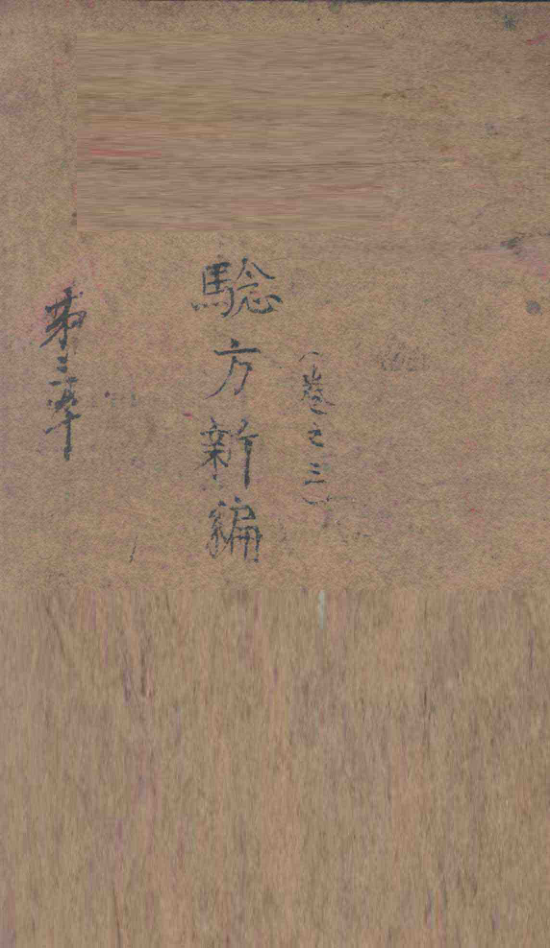 (卷之三)
騐方新編
第三